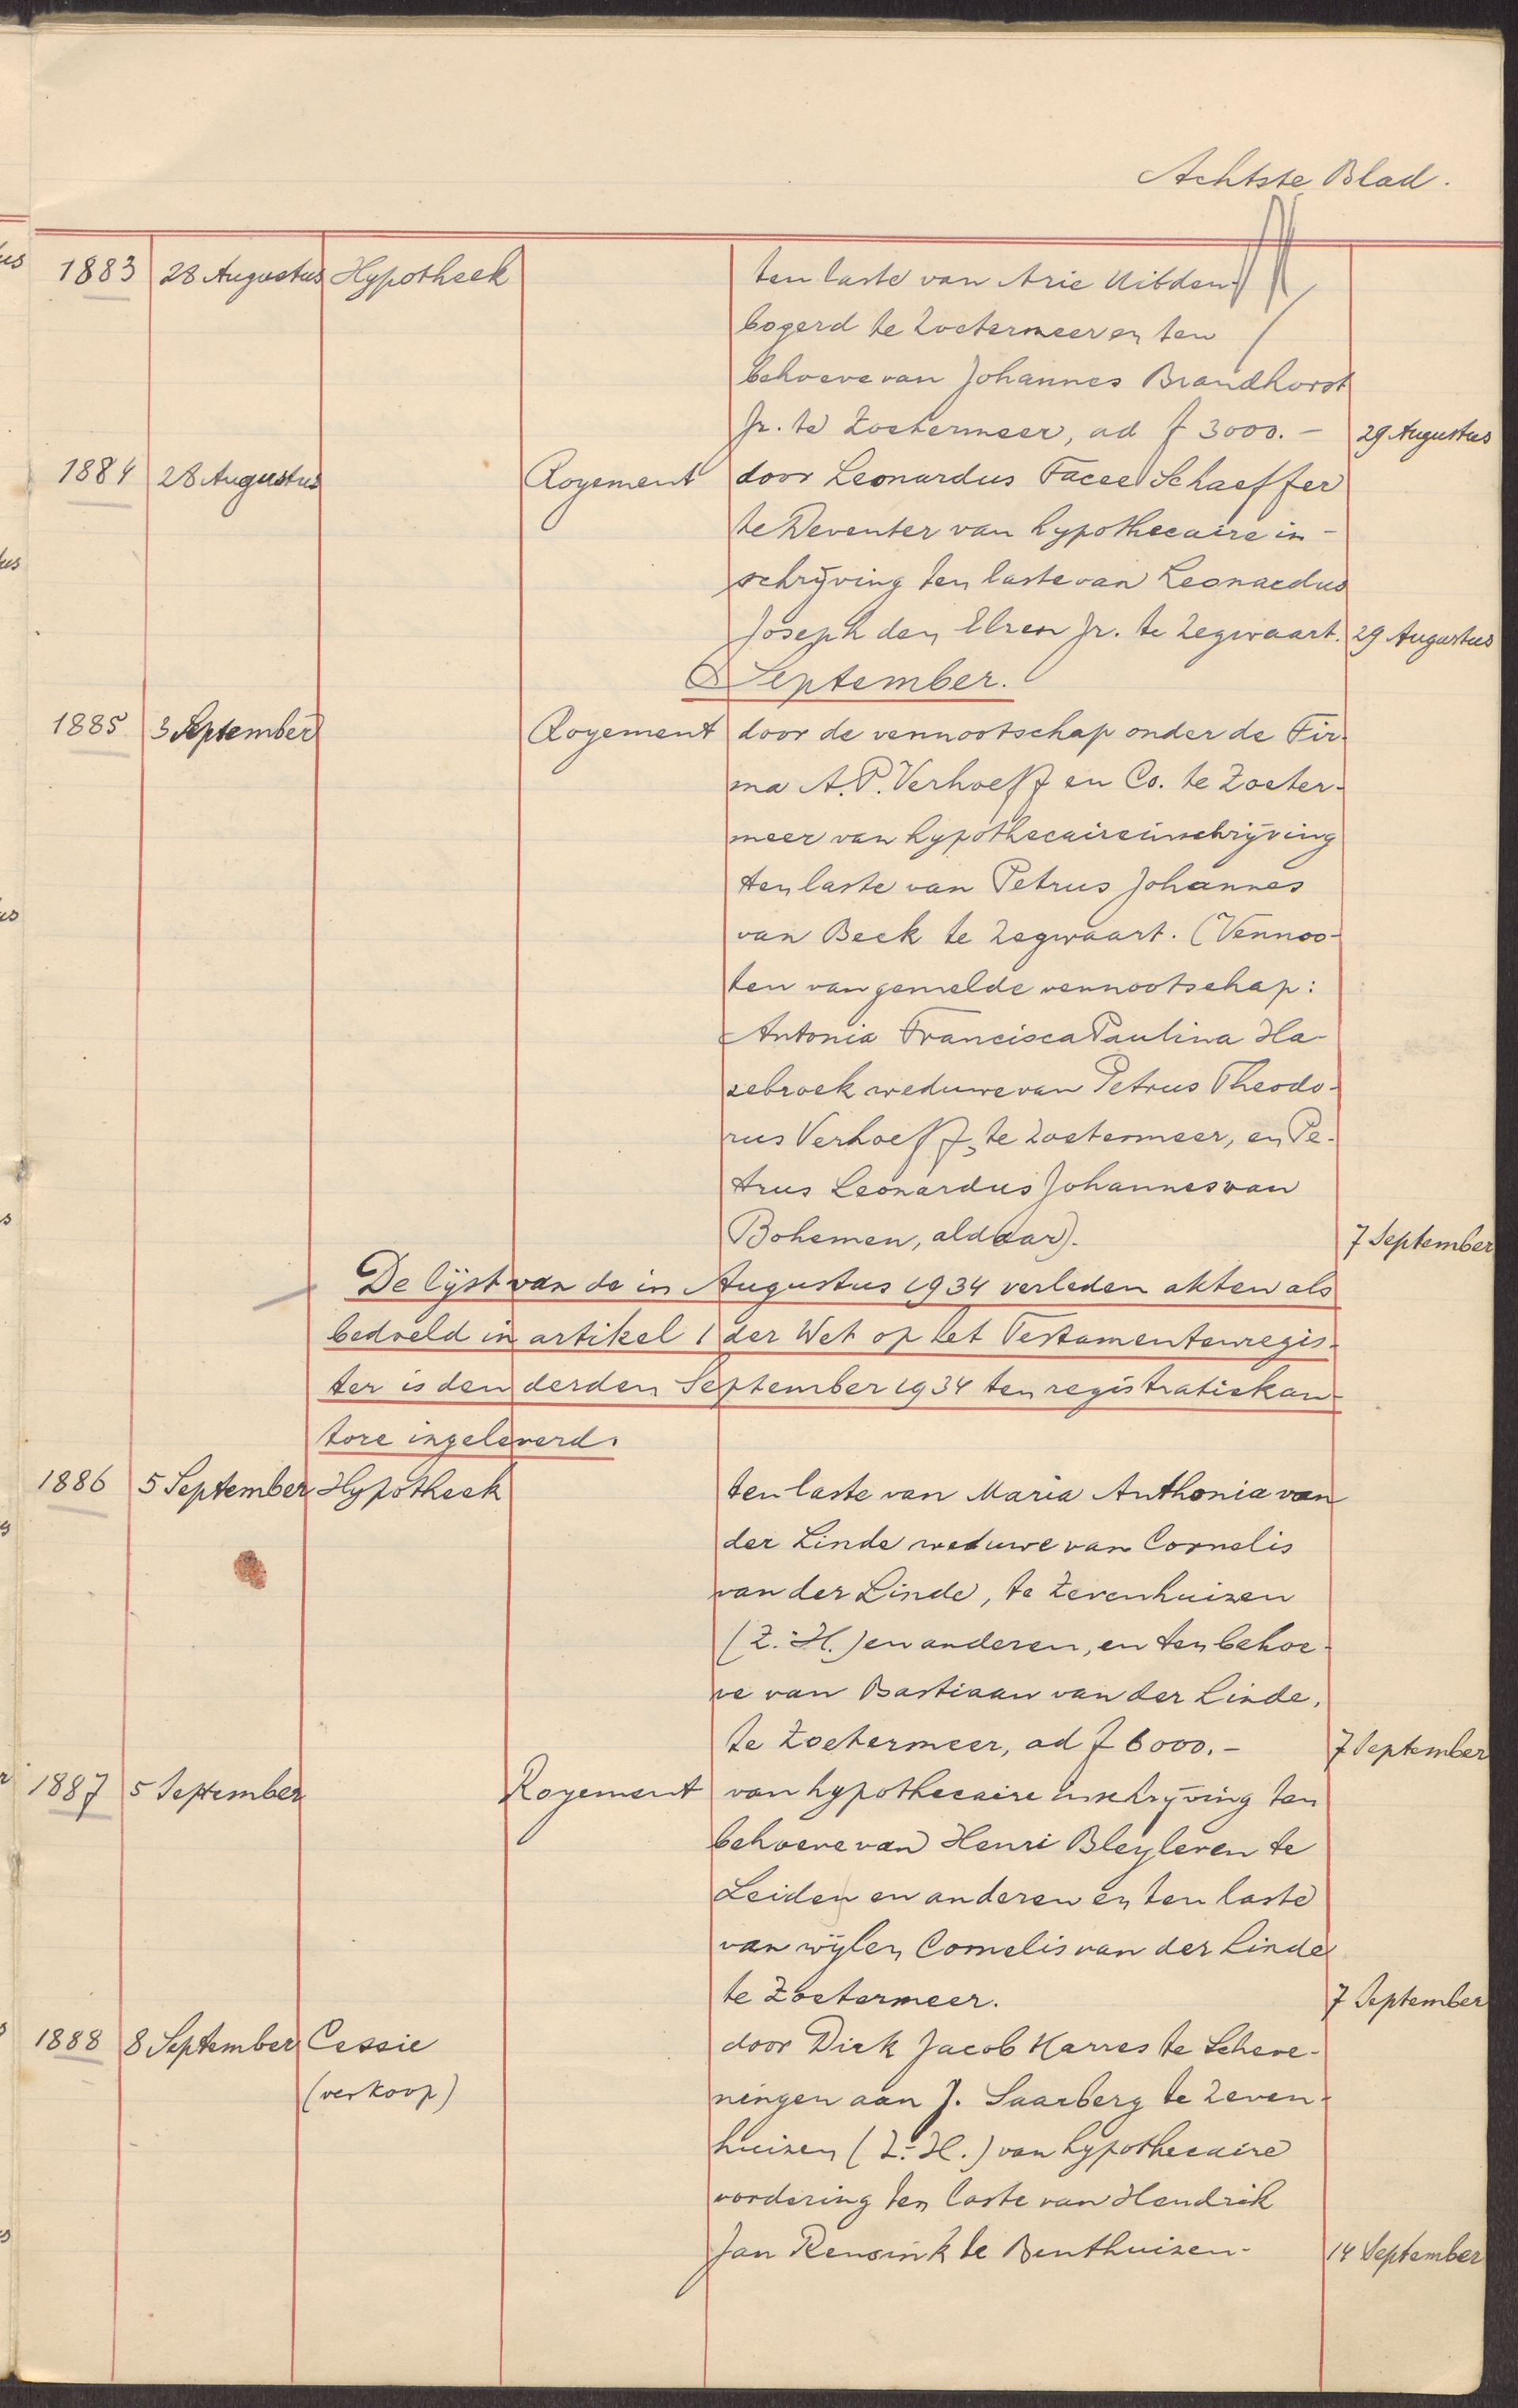 Achtste Blad.
1883 28 Augustus Hypotheek ten laste van Arie Uitden-
bogerd te Zoetermeer en ten
behoeve van Johannes Brandhorst
Jr. te Zoetermeer, ad f 3000.— 29 Augustus
1884 28 Augustus Royement door Leonardus Facee Schaeffer
te Deventer van hypothecaire in-
schrijving ten laste van Leonardus
Joseph den Elzen Jr. te Zegwaart. 29 Augustus
September.
1885 3 September Royement door de vennootschap onder de Fir-
ma A.P. Verhoeff en Co. te Zoeter-
meer van hypothecaire inschrijving
ten laste van Petrus Johannes
van Beek te Zegwaart. (Vennoo-
ten van gemelde vennootschap:
Antonia Francisca Paulina Ha-
zebroek weduwe van Petrus Theodo-
rus Verhoeff, te Zoetermeer, en Pe-
trus Leonardus Johannes van
Bohemen, aldaar). 7 September
De lijst van de in Augustus 1934 verleden akten als
bedoeld in artikel 1 der Wet op het Testamentenregis-
ter is den derden September 1934 ten registratiekan-
tore ingeleverd.
1886 5 September Hypotheek ten laste van Maria Anthonia van
der Linde weduwe van Cornelis
van der Linde, te Zevenhuizen
(Z.-H.) en anderen, en ten behoe-
ve van Bastiaan van der Linde,
te Zoetermeer, ad f 6000.— 7 September
1887 5 September Royement van hypothecaire inschrijving ten
behoeve van Henri Bleyleven te
Leiden en anderen en ten laste
van wijlen Cornelis van der Linde
te Zoetermeer. 7 September
1888 8 September Cessie door Dirk Jacob Karres te Scheve-
(verkoop) ningen aan J. Saarberg te Zeven-
huizen (Z.-H.) van hypothecaire
vordering ten laste van Hendrik
Jan Rensink te Benthuizen. 14 September